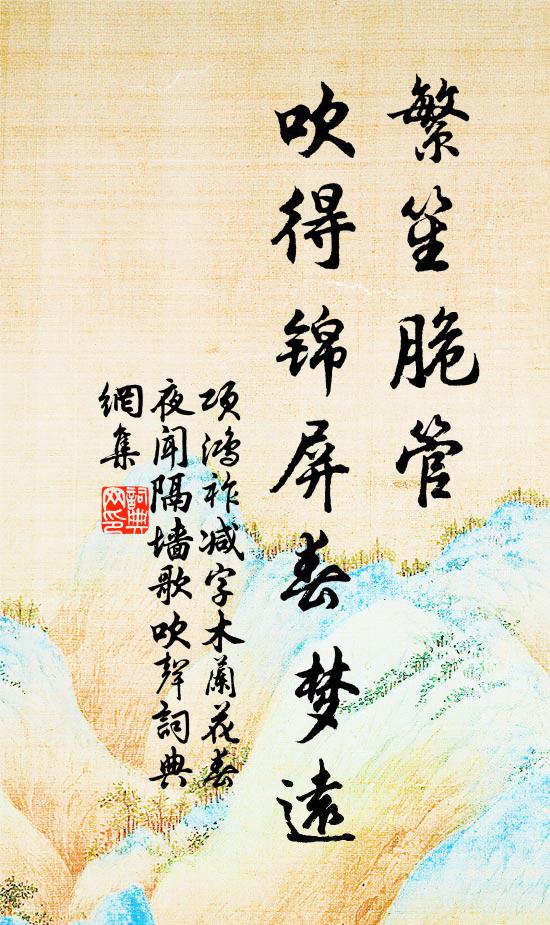 繁笙脆管
吹得锦屏春梦遠
项鴻祚减字木蘭花春
夜聞隔墙歌吹聲詞典
網集
詞典
网印